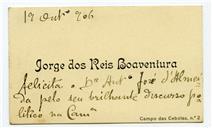 17 Out.º 906
Jorge dos Reis Boaventura
felicita o Dr. Antº José d'Almei
da pelo seu brilhante discurso po
litico na Camª
Campo das Cebolas, n.º 2